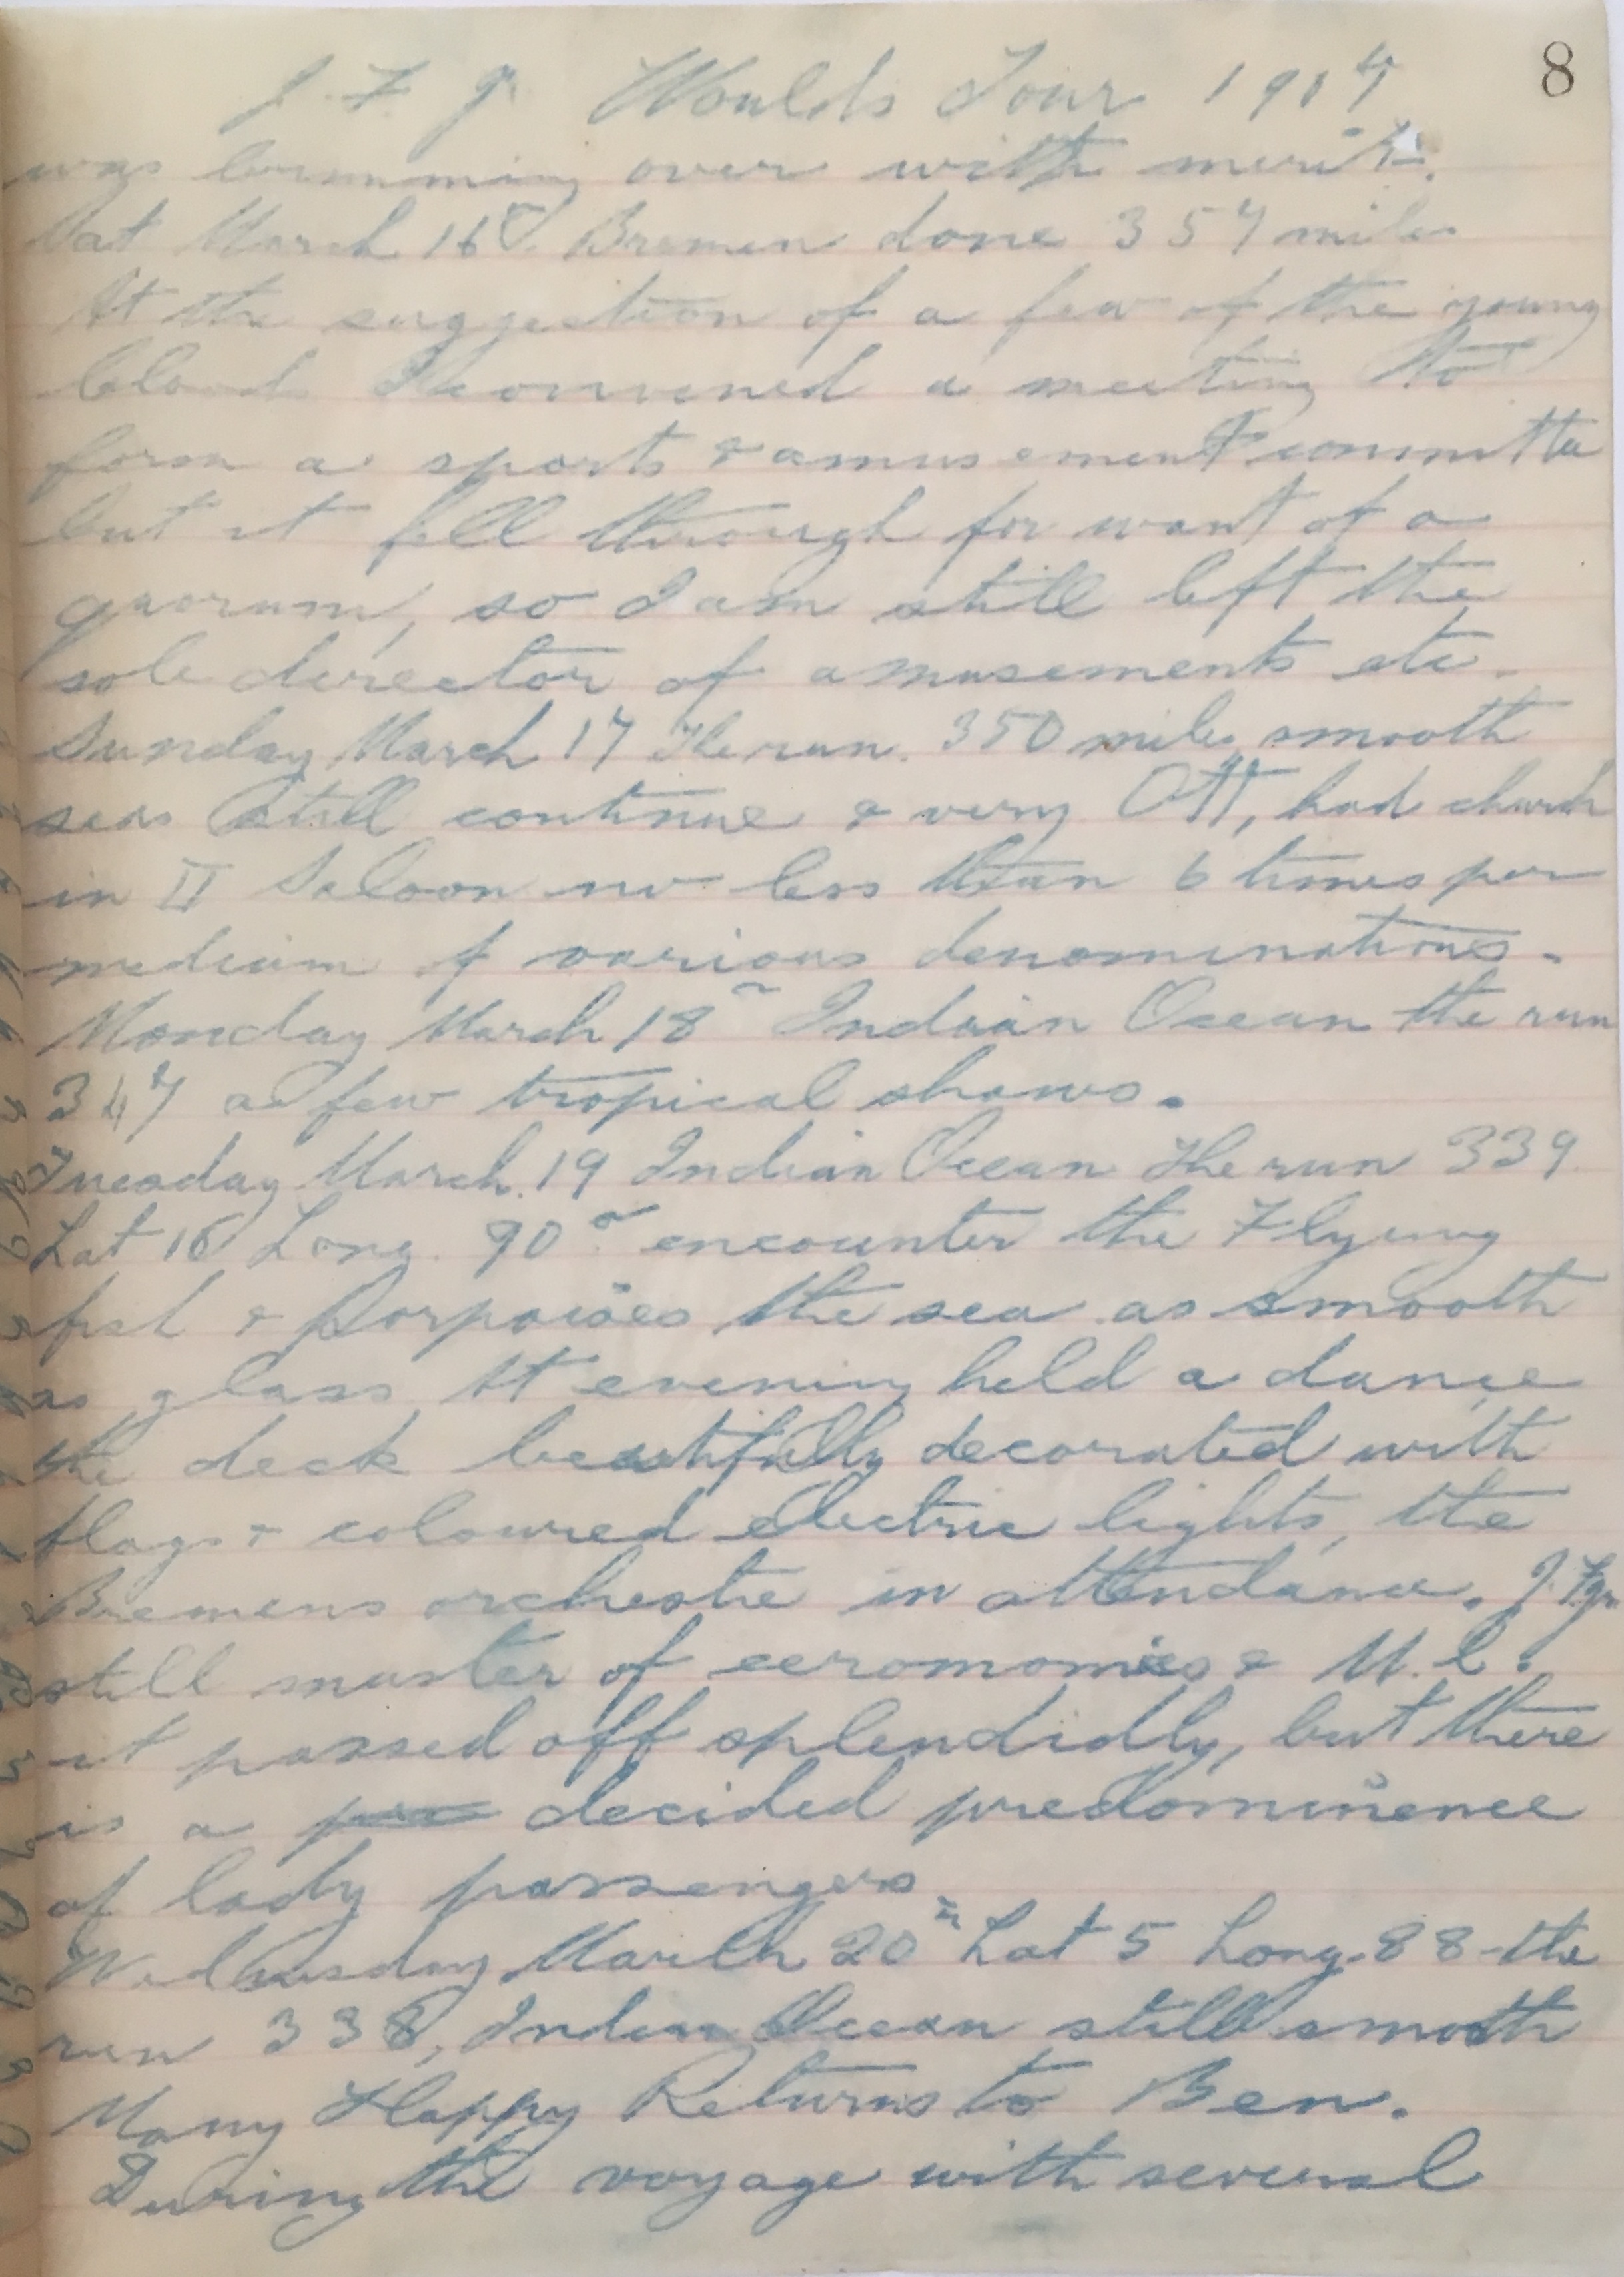 8
J. F. J. Worlds Tour 1907
was brimming over with merit.
Sat March 16th Bremen done 357 miles
At the suggestion of a few of the young
blood I convened a meeting to
form a sports & amusement committe
but it fell through for want of a
quorum, so I am still left the
sole director of amusements etc.
Sunday March 17 The run. 350 miles, smooth
seas still continue & very Ott, had church
in II Saloon no less than 6 times per
medium of various denominations.
Monday March 18th Indian Ocean the run
347 a few tropical shows.
Tuesday March. 19 Indian Ocean The run 339
Lat 16 Long. 90° encounter the Flying
fish & Porpoises the sea as smooth
as glass, At evening held a dance
the deck beautifully decorated with
flags & coloured electric lights, the
Bremens orchestre in attendance.
still master of ceromonies & M.C.
it passed off splendidly, but there
is a decided predominence
of lady passengers
Wednesday March 20th Lat 5 Long. 88 the
run 338, Indian Ocean still smooth
Many Happy Returns to Ben.
During the voyage with several